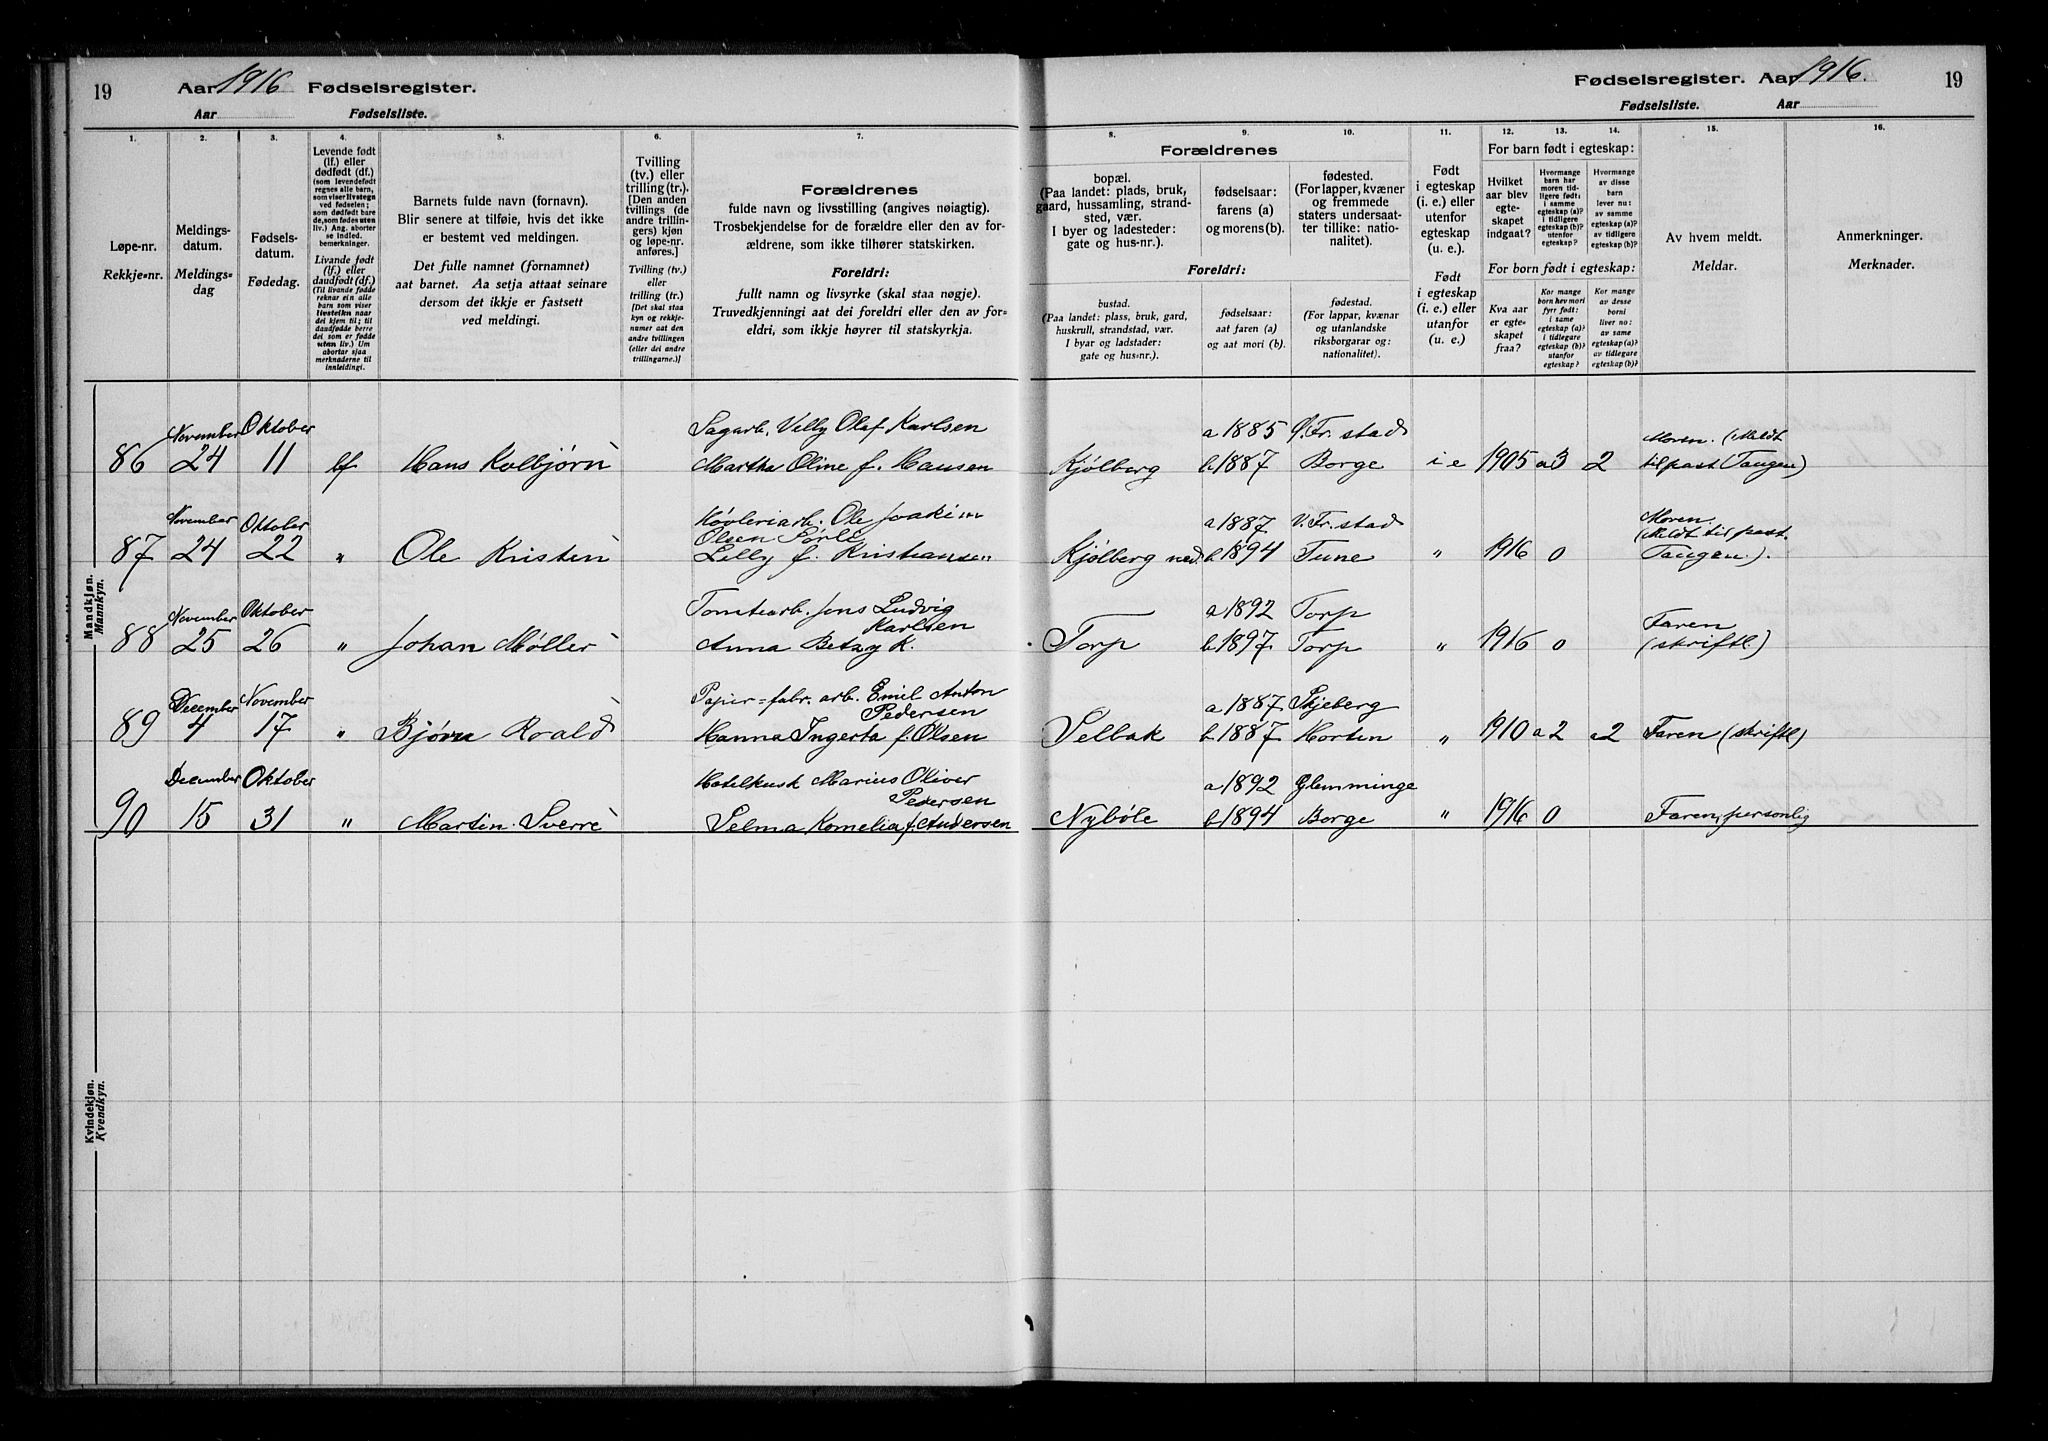 19 Aar 1916 Fødselsregister.
Aar Fødselsliste.
1. 2. 3. 4. 5. 6. 7.
Løpe-nr.
Rekkje-nr.
Meldings-
datum.
Meldings-
dag
Fødsels-
datum.
Fødedag.
Levende født
(lf.) eller
dødfødt (df.)
(som levendefødt
regnes alle barn,
som viser livstegn
ved fødselen;
som dødfødt bare
de, som fødes uten
liv.) Ang. aborter
se indled.
bemerkninger.
Livande født
(lf.) eller
daudfødt (df.)
(Til livande fødde
reknar ein alle
barn som viser
livsteikn naar
dei kjem til; til
daudfødde berre
dei som er fødde
utan liv.) Um
abortar sjaa
merknaderne til
innleidingi.
Barnets fulde navn (fornavn).
Blir senere at tilføie, hvis det ikke
er bestemt ved meldingen.
Det fulle namnet (fornamnet)
aat barnet. Aa setja attaat seinare
dersom det ikkje er fastsett
ved meldingi.
Tvilling
(tv.) eller
trilling (tr.).
[Den anden
tvillings (de
andre trillin-
gers) kjøn
og løpe-nr.
anføres.]
Tvilling (tv.)
eller
trilling (tr.)
[Det skal staa
kyn og rekkje-
numer aat den
andre tvillingen
(eller dei andre
trillingarne.)]
Forældrenes
fulde navn og livsstilling (angives nøiagtig).
Trosbekjendelse for de forældre eller den av for-
ældrene, som ikke tilhører statskirken.
Foreldri:
fullt namn og livsyrke (skal staa nøgje).
Truvedkjenningi aat dei foreldri eller den av for-
eldri, som ikkje høyrer til statskyrkja.
Mandkjøn.
Mannkyn.
Kvindekjøn.
Kvendkyn.
November Oktober Sagarb. Velly Olaf Karlsen
86 24 11 lf Hans Kolbjørn Martha Oline f. Hansen
November Oktober Høvleriarb. Ole Joakim
Olsen Sørli
87 24 22 " Ole Kristen Lilly f. Kristiansen
November Oktober Tomtearb. Jens Ludvig
Karlsen
88 25 26 " Johan Møller Anna Betzy K.
December November Papir-fabr. arb. Emil Anton
Pedersen
89 4 17 " Bjørn Roald Hanna Ingerta f. Olsen
December Oktober Hotelkusk Marius Oliver
Pedersen
90 15 31 " Martin Sverre Selma Kornelia f. Andersen
Fødselsregister. Aar 1916. 19
Fødselsliste. Aar
8. 9. 10. 11. 12. 13. 14. 15. 16.
Forældrenes
bopæl.
(Paa landet: plads, bruk,
gaard, hussamling, strand-
sted, vær.
I byer og ladesteder:
gate og hus-nr.).
fødselsaar:
farens (a)
og morens (b).
fødested.
(For lapper, kvæner
og fremmede
staters undersaat-
ter tillike: natio-
nalitet).
Foreldri:
bustad.
(Paa landet: plass, bruk, gard,
huskrull, strandstad, vær.
I byar og ladstader:
gate og hus-nr.).
fødselsaar:
aat faren (a)
og aat mori (b).
fødestad.
(For lappar, kvænar
og utanlandske
riksborgarar og:
nationalitet).
Født
i egteskap
(i. e.) eller
utenfor
egteskap
(u. e.).
Født
i egteskap
(i. e.) eller
utanfor
(u. e.)
For barn født i egteskap:
Hvilket
aar blev
egte-
skapet
indgaat?
Hvormange
barn har
moren tid-
ligere født:
i samme
egteskap (a)?
i tidligere
egteskap (b)?
utenfor
egteskap?
Hvormange
av disse
barn
lever nu:
av samme
egteskap (a)?
av tidligere
egteskap (b)?
For born født i egteskap:
Kva aar
er egte-
skapet
fraa?
Kor mange
born hev mori
fyrr født:
i same
egteskap (a)?
i tidlegare
egteskap (b)?
utanfor
egteskap?
Kor mange
av desse
borni
liver no:
av same
egteskap (a)?
av tidlegare
egteskap (b)?
Av hvem meldt.
Meldar.
Anmerkninger.
Merknader.
a 1885 Fr.stad Moren. (Meldt
Kjølberg b 1887 Borge i e 1905 a 3 2 til past. Tangen)
a 1887 V. Fr.stad Moren
(Meldt til past.
Kjølberg ned. b 1894 Tune " 1916 0 Tangen.).
a 1892 Torp Faren
Torp b 1897 Torp " 1916 0 (skriftl.)
a 1887 Skjeberg
Selbak b 1887 Horten " 1910 a 2 a 2 Faren (skriftl)
a 1892 Glemminge
Nybøle b 1894 Borge " 1916 0 Faren, personlig